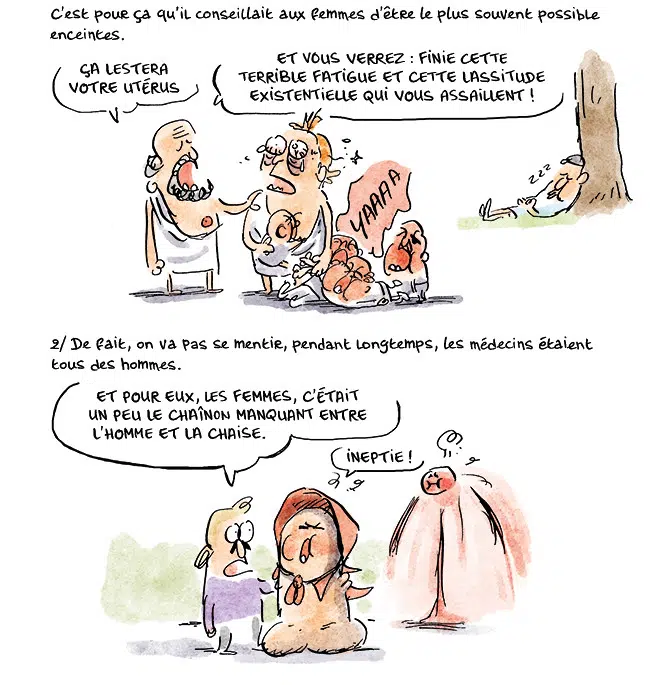 C'est pour ça qu'il conseillait aux femmes d'être le plus souvent possible
enceintes.
ÇA LESTERA
VOTRE UTÉRUS
ET VOUS VERREZ : FINIE CETTE
TERRIBLE FATIGUE ET CETTE LASSITUDE
EXISTENTIELLE QUI VOUS ASSAILLENT !
zzz
YAAAA
2/ De fait, on va pas se mentir, pendant longtemps, les médecins étaient
tous des hommes.
ET POUR EUX, LES FEMMES, C'ÉTAIT
UN PEU LE CHAÎNON MANQUANT ENTRE
L'HOMME ET LA CHAISE.
INEPTIE !